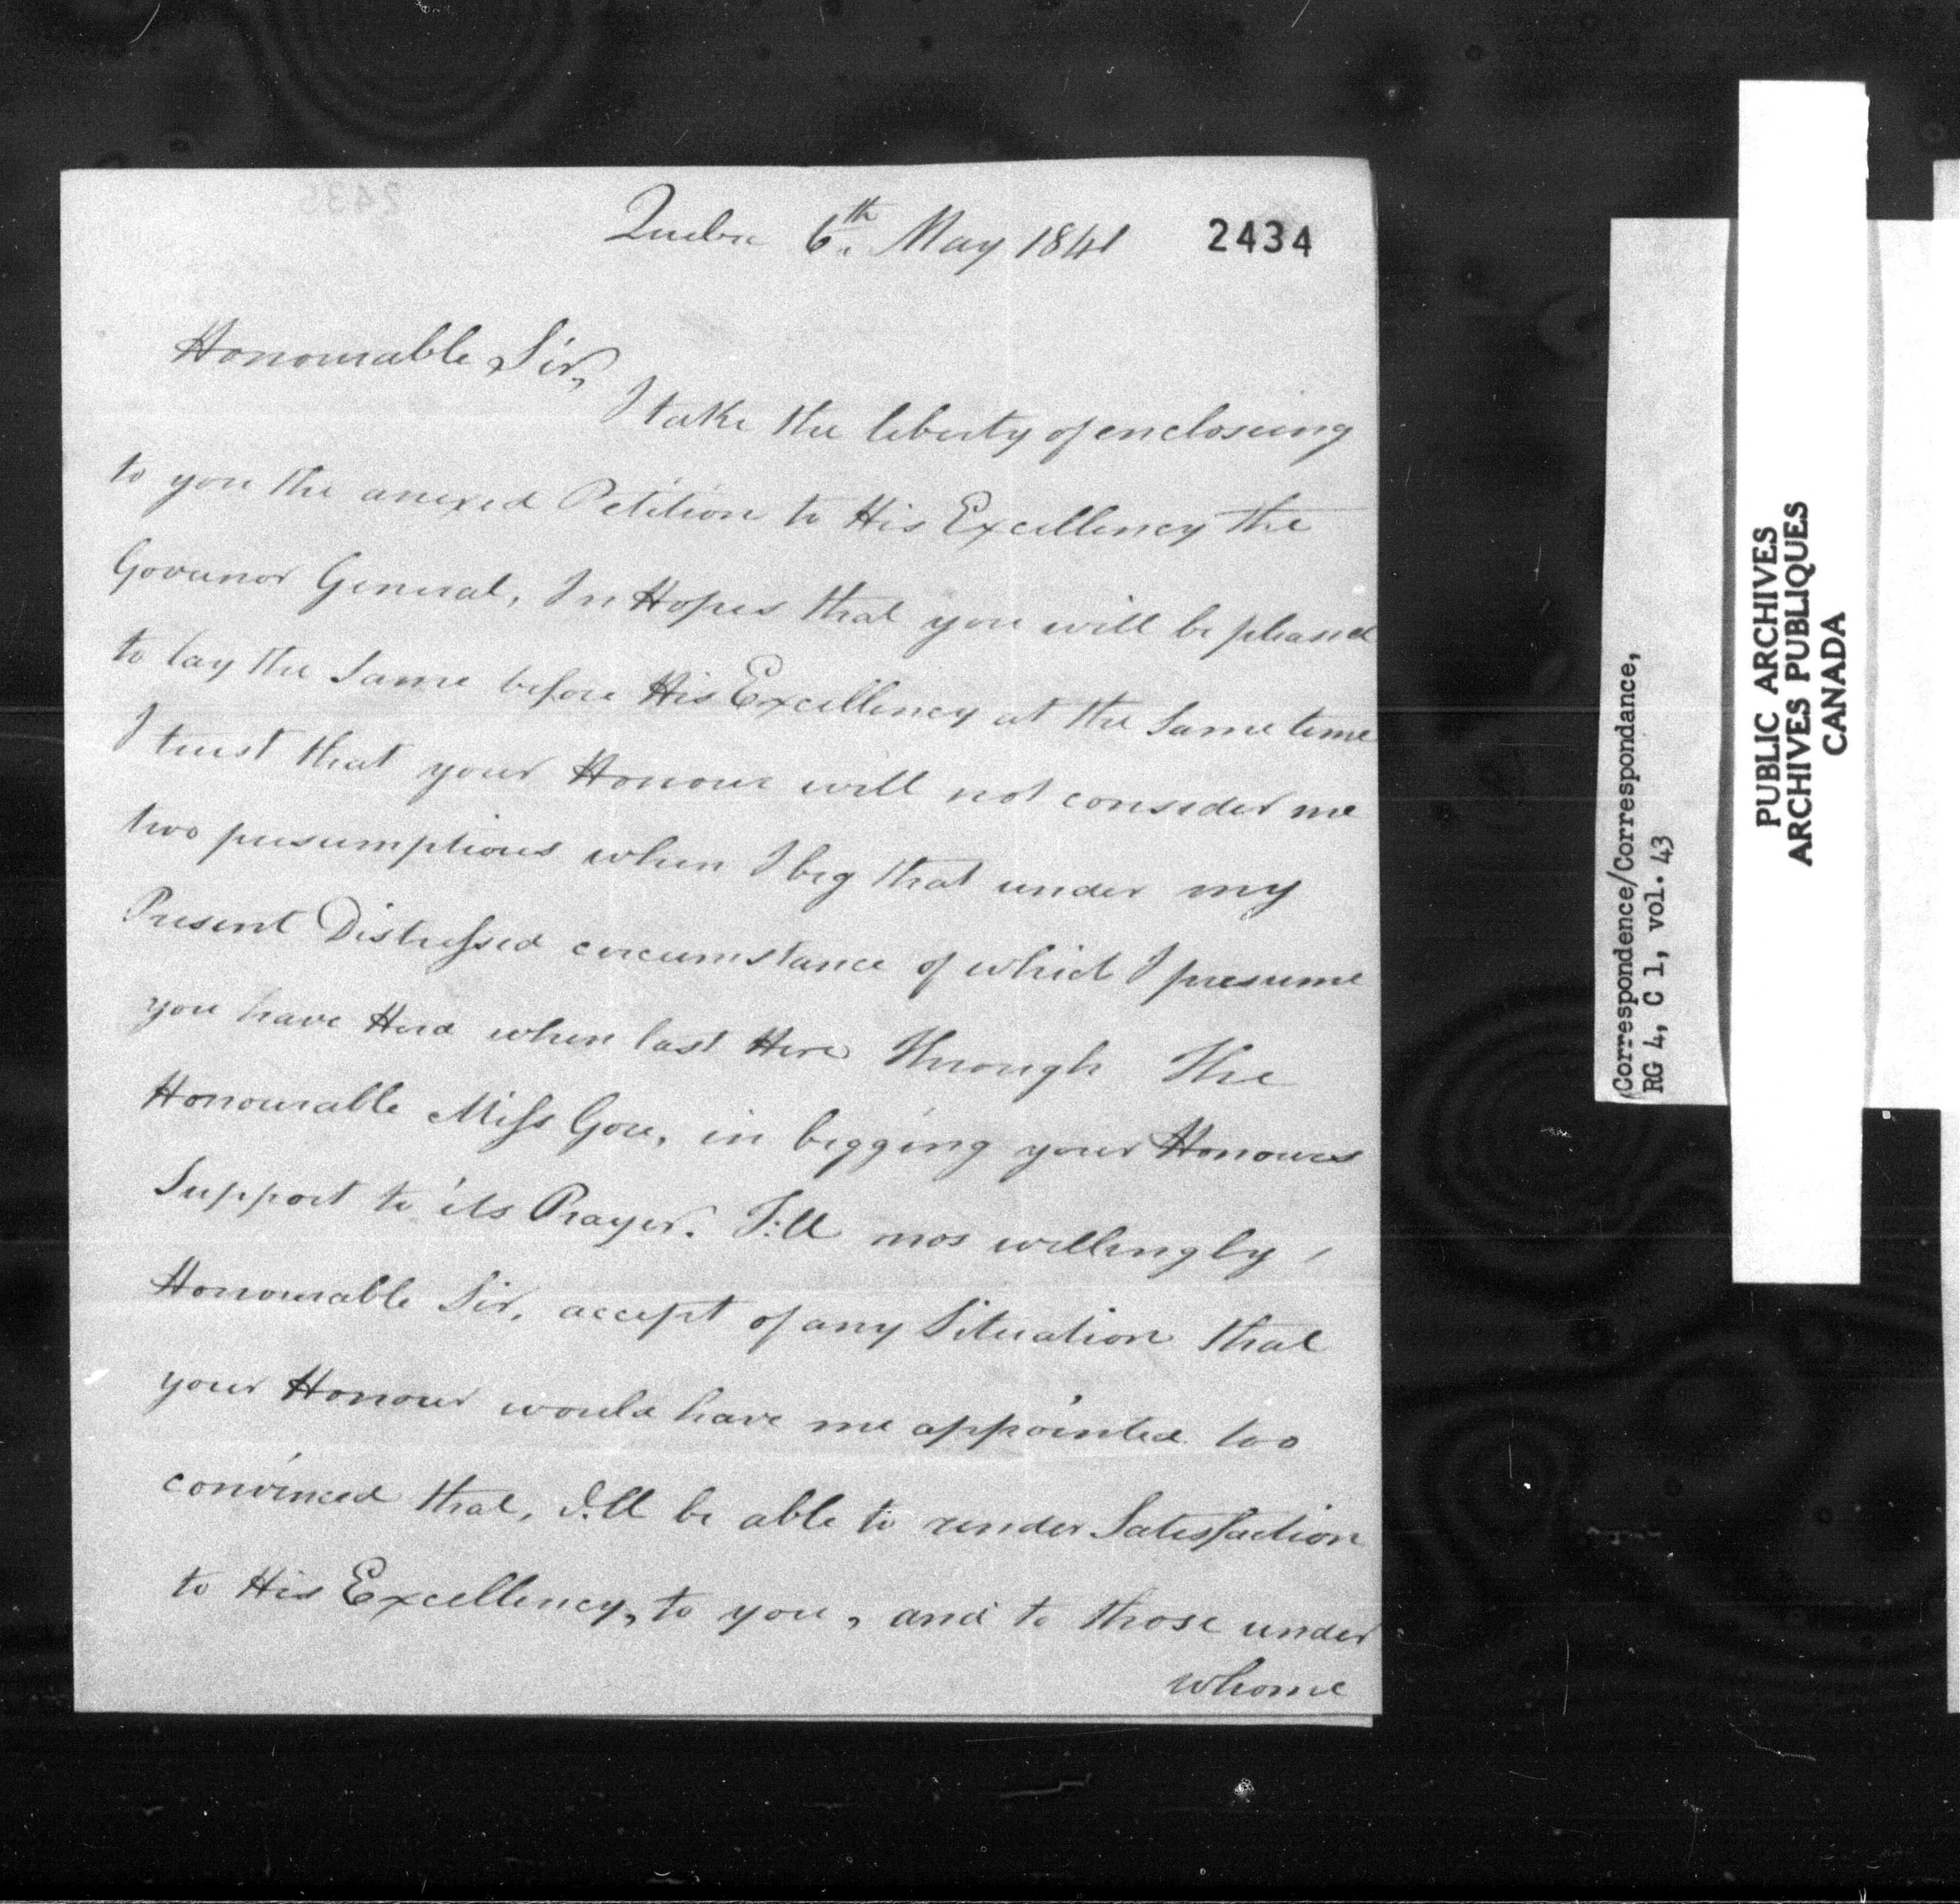 Quebec 6th. May 1841
2434
Honourable Sir,
I take the liberty of encloseing
to you the anexed Petition to His Excellency the
Governor General, In Hopes that you will be pleased
to lay the Same before His Excellency at the Same time
I trust that your Honour will not consider me
two presumptious when I beg that under my
Present Distressed circumstance of which I presume
you have Herd when last Here Through The
Honourable Miss Gore, in begging your Honours
Support to its Prayer. I'll mos willingly,
Honourable Sir, accept of any Situation that
your Honour would have me appointed too
convinced that, I'll be able to render Satisfaction
to His Excellency, to you, and to those under
whome
Correspondence/Correspondance,
RG 4, C 1, vol. 43
PUBLIC ARCHIVES
ARCHIVES PUBLIQUES
CANADA